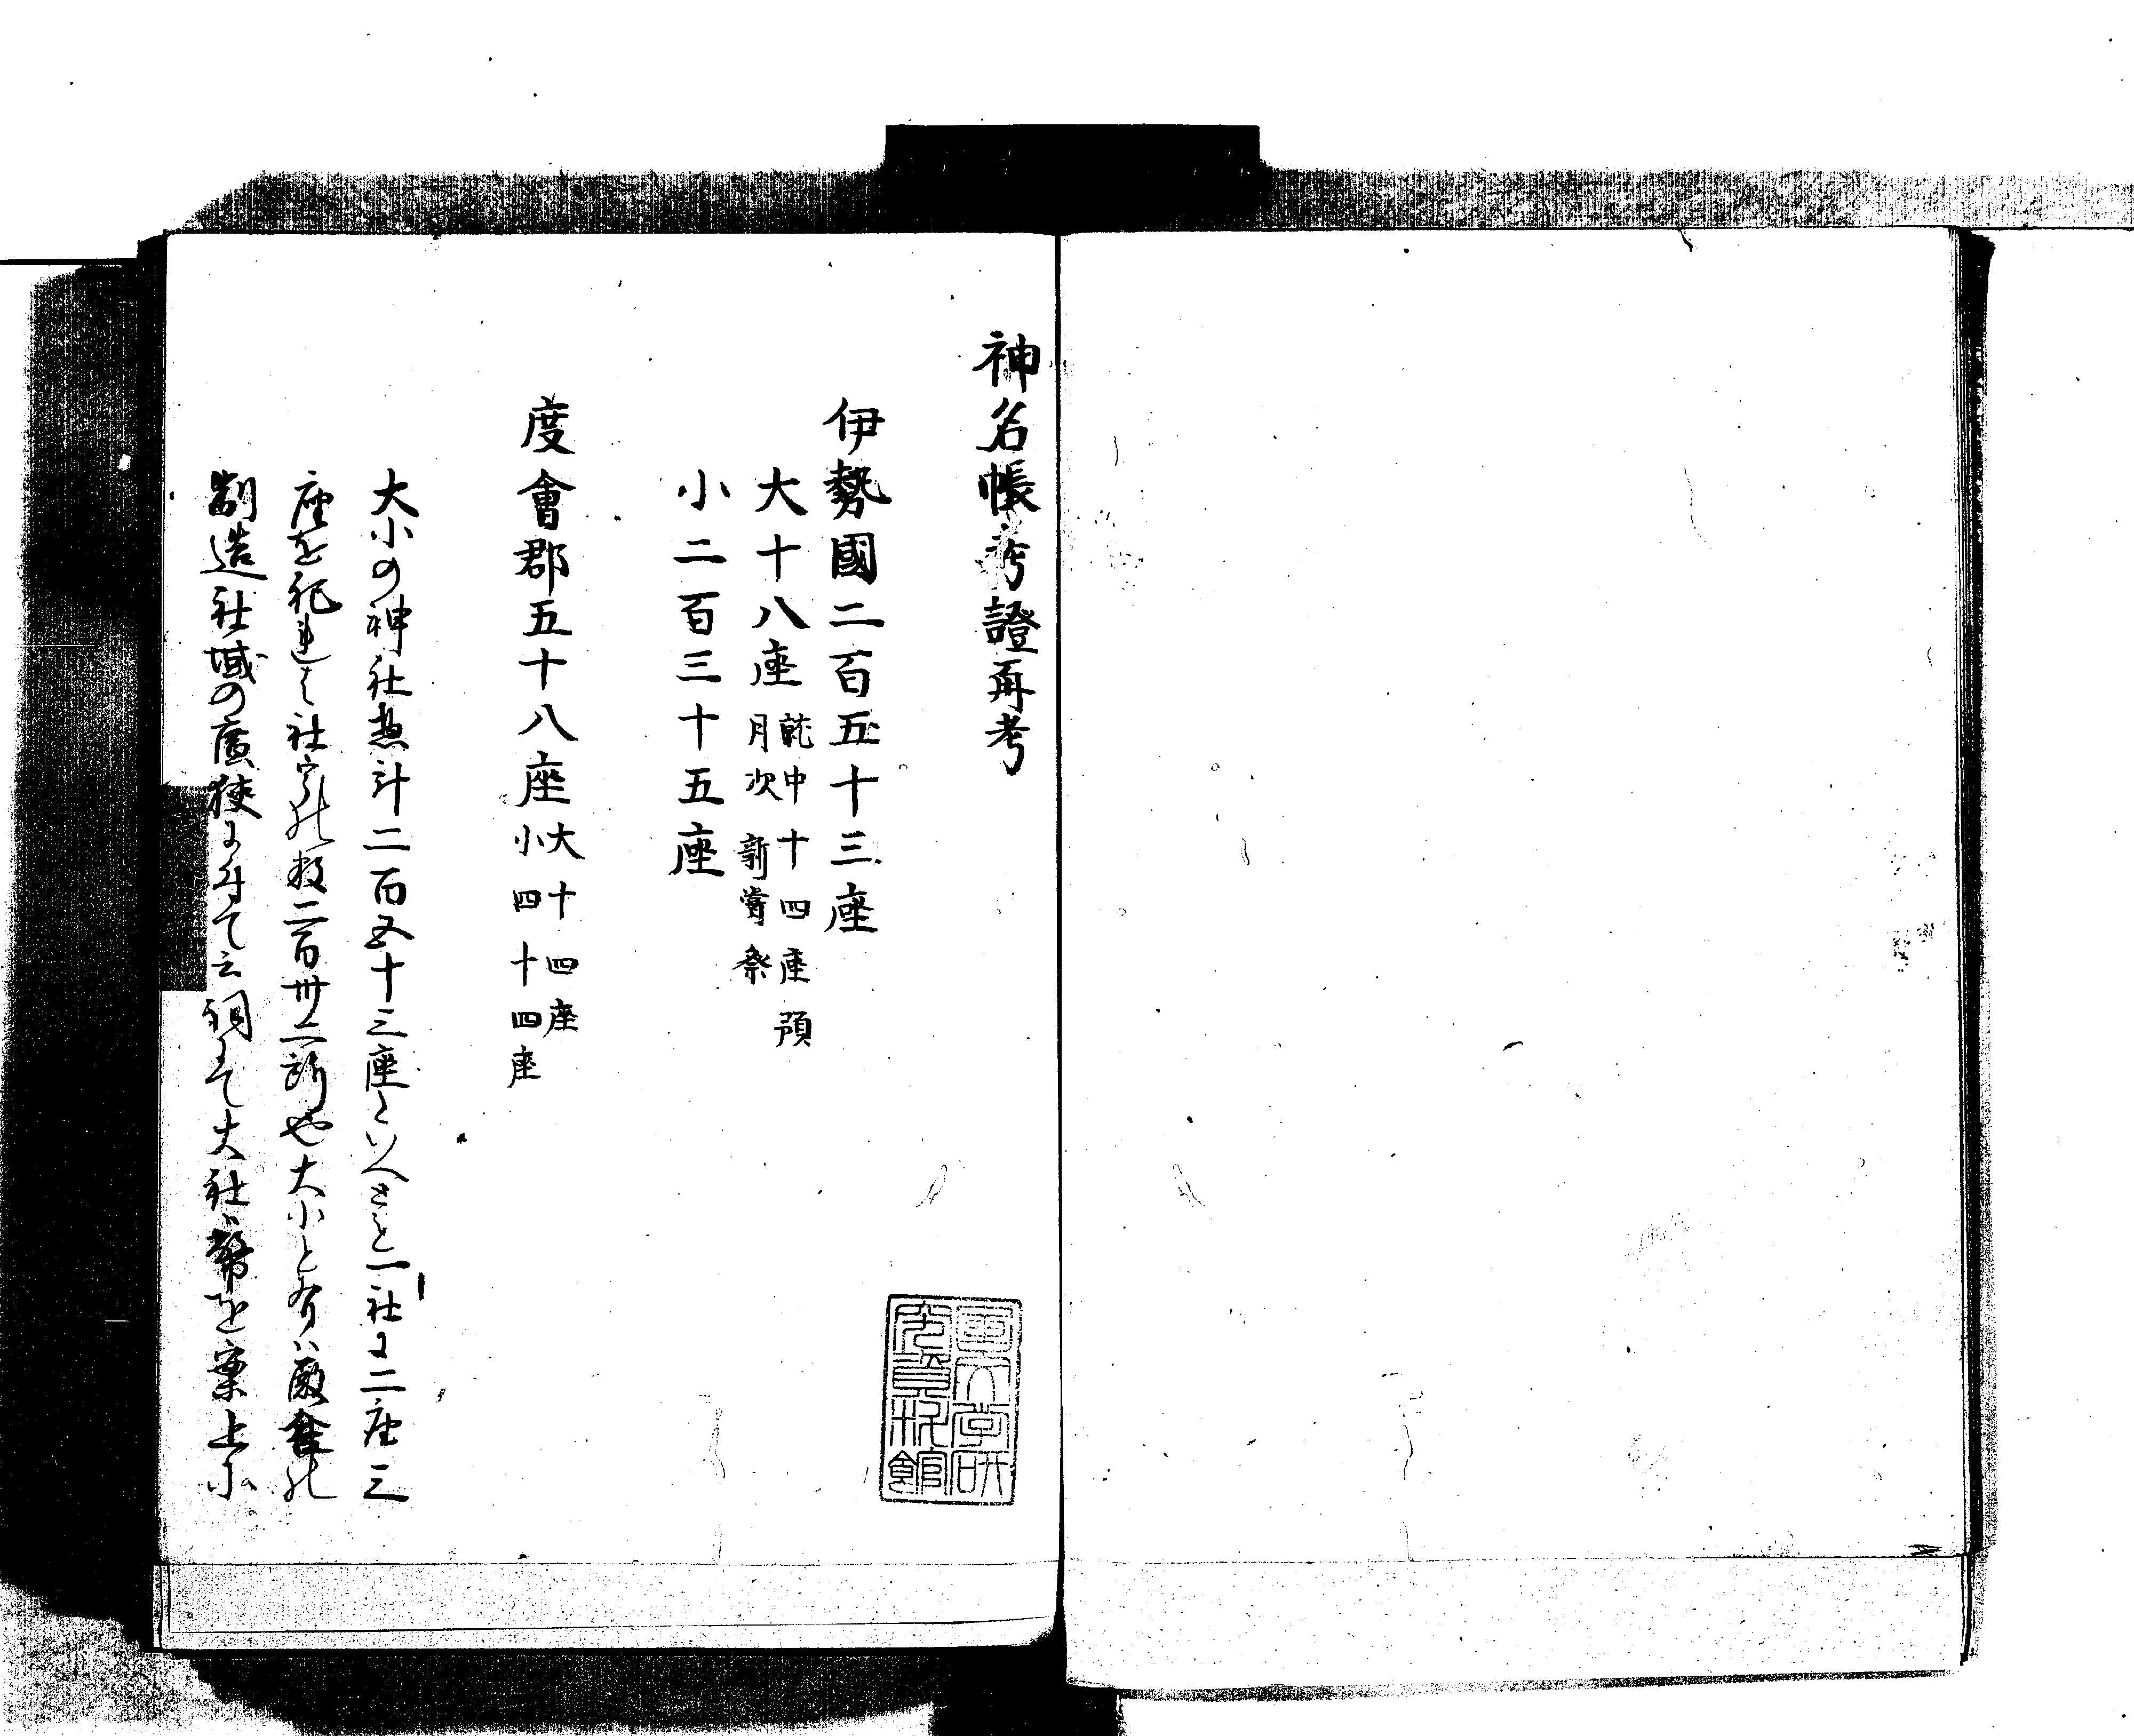 神名帳考證再考
伊勢國二百五十三座
大十八座 就中十四座預
月次新嘗祭
小二百三十五座
度會郡五十八座 大十四座
小四十四座
大小の神社惣計二百五十三座といへさと一社に二座三
座を祀れは社家の数二百卅二所也大小と有ハ殿舎の
制造社域の廣狭に付て云詞にて大社ハ幣を案上に